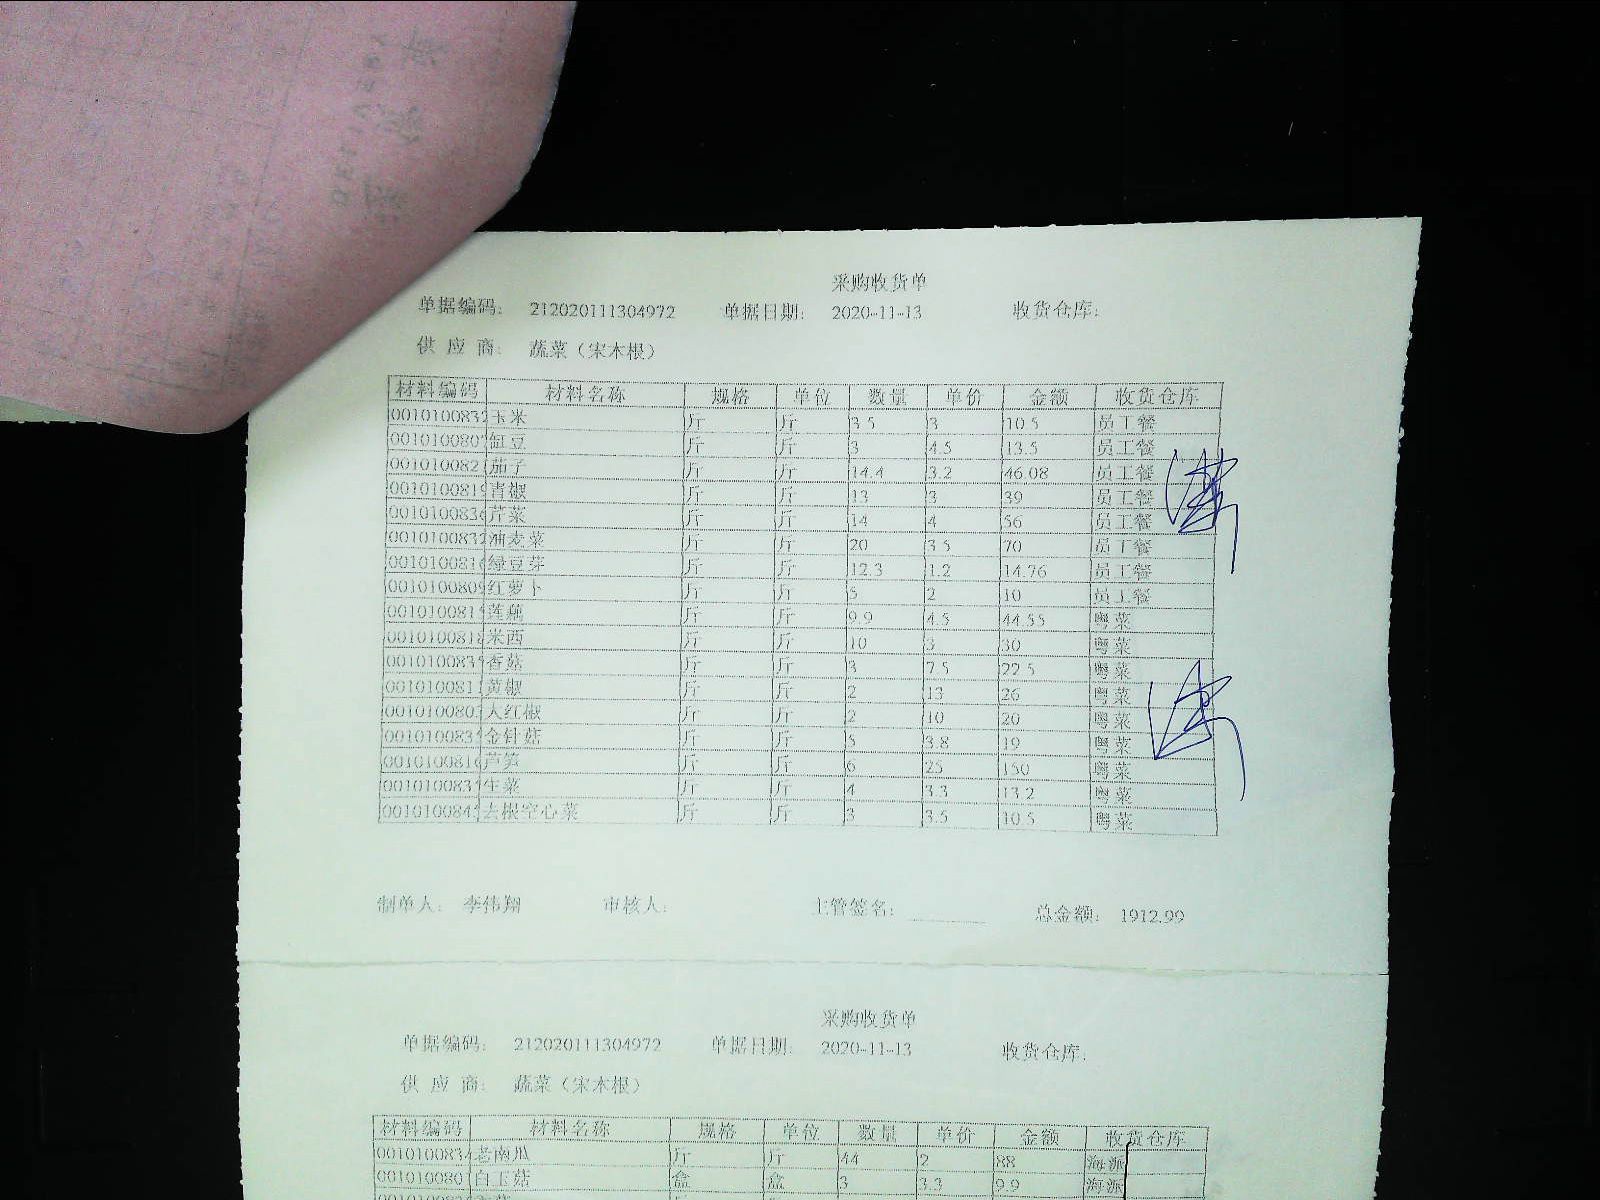 采购收货单
单据编码: 212020111304972 单据日期: 2020-11-13 收货仓库:
供应商: 蔬菜（宋本根）
材料编码 材料名称 规格 单位 数量 单价 金额 收货仓库
001010083 玉米 斤 斤 3.5 3 10.5 员工餐
001010080 缸豆 斤 斤 3 4.5 13.5 员工餐
001010082 茄子 斤 斤 14.4 3.2 46.08 员工餐
001010081 青椒 斤 斤 13 3 39 员工餐
001010083 芹菜 斤 斤 14 4 56 员工餐
001010083 油麦菜 斤 斤 20 3.5 70 员工餐
001010081 绿豆芽 斤 斤 12.3 1.2 14.76 员工餐
001010080 红萝卜 斤 斤 5 2 10 员工餐
001010081 莲藕 斤 斤 9.9 4.5 44.55 粤菜
001010081 米西 斤 斤 10 3 30 粤菜
001010083 香菇 斤 斤 3 7.5 22.5 粤菜
001010081 黄椒 斤 斤 2 13 26 粤菜
001010080 大红椒 斤 斤 2 10 20 粤菜
001010083 金针菇 斤 斤 5 3.8 19 粤菜
001010081 芦笋 斤 斤 6 25 150 粤菜
001010083 生菜 斤 斤 4 3.3 13.2 粤菜
001010084 去根空心菜 斤 斤 3 3.5 10.5 粤菜
制单人: 李伟翔 审核人: 主管签名: 总金额: 1912.99
采购收货单
单据编码: 212020111304972 单据日期: 2020-11-13 收货仓库:
供应商: 蔬菜（宋本根）
材料编码 材料名称 规格 单位 数量 单价 金额 收货仓库
001010083 老南瓜 斤 斤 44 2 88 海派
001010080 白玉菇 盒 盒 3 3.3 9.9 海派